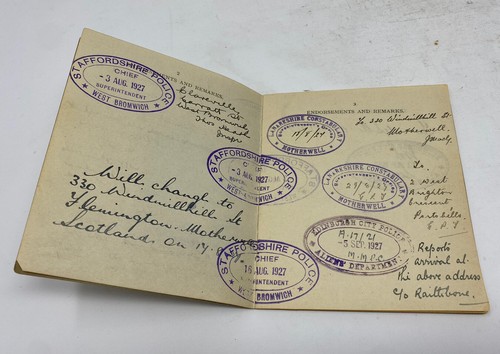 STAFFORDSHIRE POLICE
CHIEF
- 3 AUG. 1927
SUPERINTENDENT
WEST BROMWICH
ENDORSEMENTS AND REMARKS.
West Bromwich
STAFFORDSHIRE POLICE
CHIEF
- 3 AUG. 1927
SUPERINTENDENT
WEST BROMWICH
Will change to
330 Windmillhill St
Flemington. Motherwell
Scotland. on 17.
STAFFORDSHIRE POLICE
CHIEF
16 AUG. 1927
SUPERINTENDENT
WEST BROMWICH
ENDORSEMENTS AND REMARKS.
LANARKSHIRE CONSTABULARY
MOTHERWELL
To 330 Windmillhill St.
Motherwell.
LANARKSHIRE CONSTABULARY
MOTHERWELL
To.
2 West
Brighton
Crescent
Portobello.
EDINBURGH CITY POLICE
A.17/21
- 5 SEP. 1927
ALIENS DEPARTMENT
Reports
arrival at
the above address
c/o